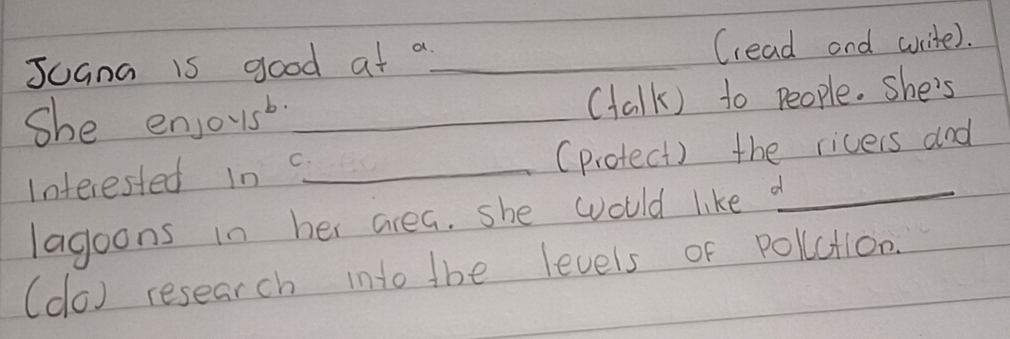 Juana is good at a. __________ (read and write).
She enjoys b. __________ (talk) to people. She's
interested in c. __________ (protect) the rivers and
lagoons in her area. she would like d __________
(do) research into the levels of pollution.